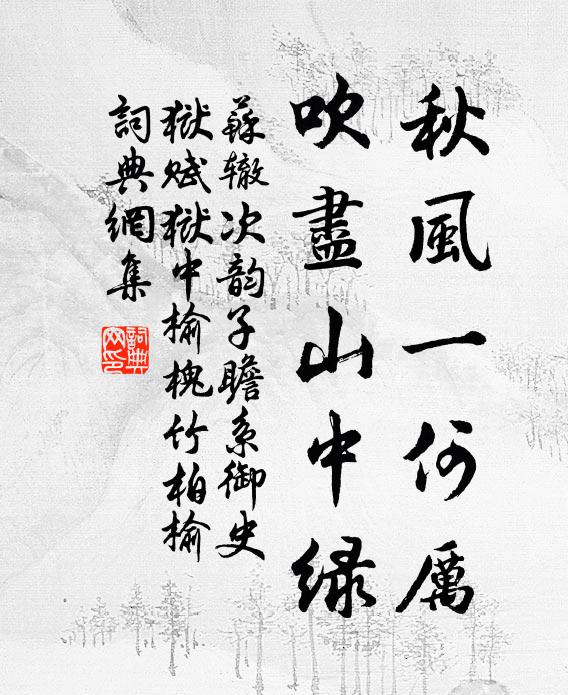 秋風一何厲
吹盡山中綠
蘇轍次韵子瞻系御史
獄赋獄中榆槐竹柏榆
詞典網集
詞典
网印